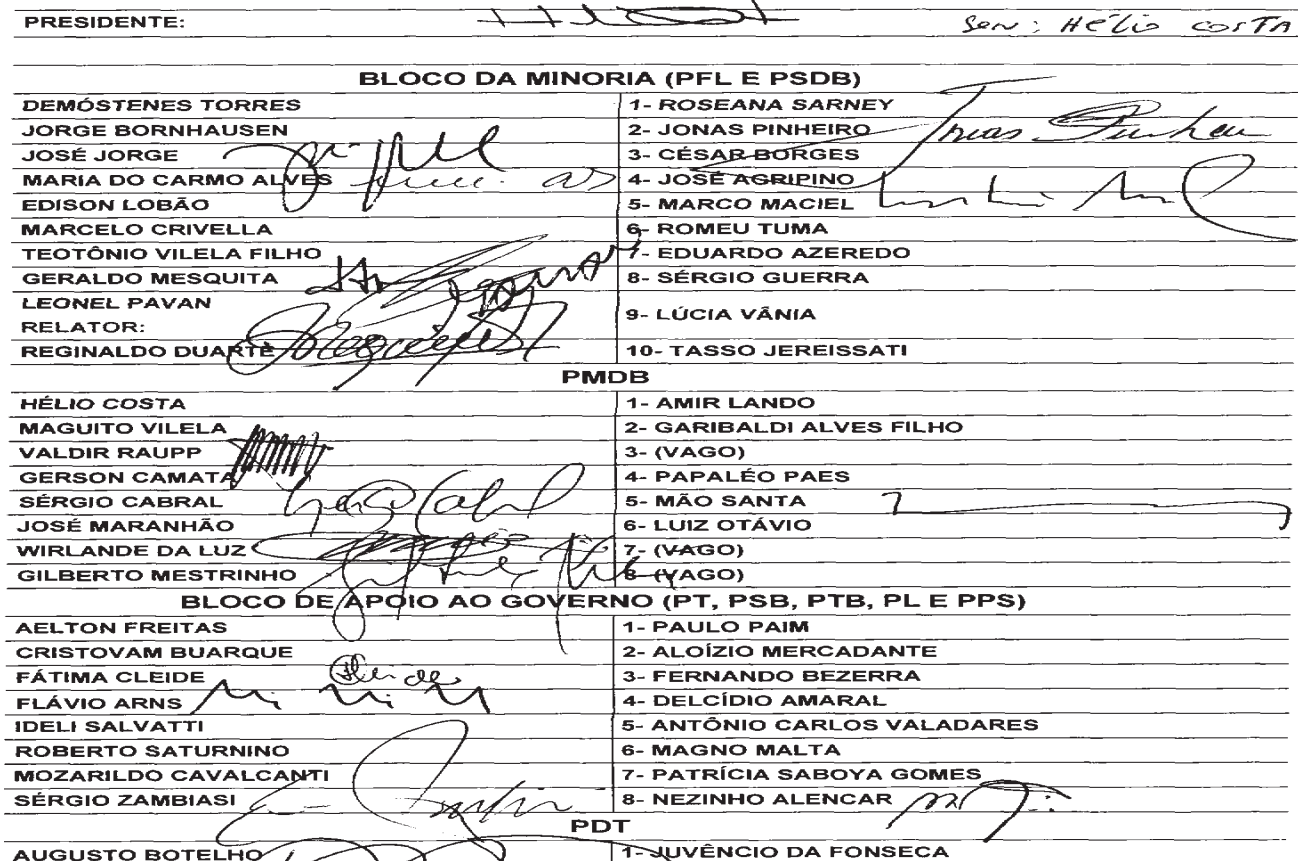 PRESIDENTE: Sen: Hélio Costa
BLOCO DA MINORIA (PFL E PSDB)
DEMÓSTENES TORRES 1- ROSEANA SARNEY
JORGE BORNHAUSEN 2- JONAS PINHEIRO Jonas Pinheiro
JOSÉ JORGE 3- CÉSAR BORGES
MARIA DO CARMO ALVES 4- JOSÉ AGRIPINO
EDISON LOBÃO 5- MARCO MACIEL
MARCELO CRIVELLA 6- ROMEU TUMA
TEOTÔNIO VILELA FILHO 7- EDUARDO AZEREDO
GERALDO MESQUITA 8- SÉRGIO GUERRA
LEONEL PAVAN
RELATOR: 9- LÚCIA VÂNIA
REGINALDO DUARTE 10- TASSO JEREISSATI
PMDB
HÉLIO COSTA 1- AMIR LANDO
MAGUITO VILELA 2- GARIBALDI ALVES FILHO
VALDIR RAUPP 3- (VAGO)
GERSON CAMATA 4- PAPALÉO PAES
SÉRGIO CABRAL 5- MÃO SANTA
JOSÉ MARANHÃO 6- LUIZ OTÁVIO
WIRLANDE DA LUZ 7- (VAGO)
GILBERTO MESTRINHO 8- (VAGO)
BLOCO DE APOIO AO GOVERNO (PT, PSB, PTB, PL E PPS)
AELTON FREITAS 1- PAULO PAIM
CRISTOVAM BUARQUE 2- ALOÍZIO MERCADANTE
FÁTIMA CLEIDE 3- FERNANDO BEZERRA
FLÁVIO ARNS 4- DELCÍDIO AMARAL
IDELI SALVATTI 5- ANTÔNIO CARLOS VALADARES
ROBERTO SATURNINO 6- MAGNO MALTA
MOZARILDO CAVALCANTI 7- PATRÍCIA SABOYA GOMES
SÉRGIO ZAMBIASI 8- NEZINHO ALENCAR
PDT
AUGUSTO BOTELHO 1- JUVÊNCIO DA FONSECA